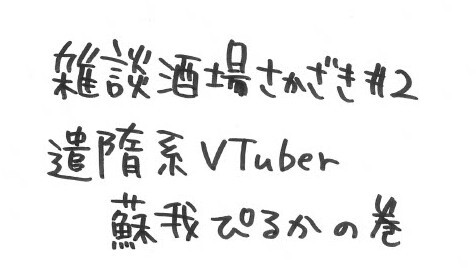 雑談酒場さかざき#2
遣隋系VTuber
蘇我ぴるかの巻